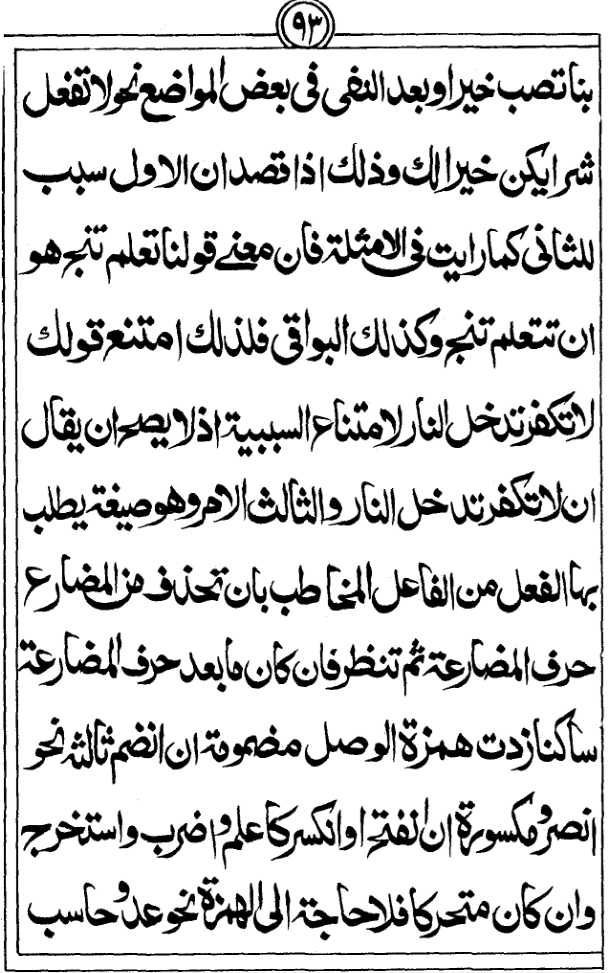 ٩٣
بنا تصب خيرا وبعد النفى فى بعض المواضع نحو لا تفعل
شرا يكن خيرا لك وذلك اذا قصد ان الاول سبب
للثانى كما رايت فى الامثلة فان معنے قولنا تعلم تنج هو
ان تتعلم تنج وكذلك البواقى فلذلك امتنع قولك
لا تكفر تدخل النار لامتناع السببية اذ لا يصح ان يقال
ان لا تكفر تدخل النار والثالث الامر وهو صيغة يطلب
بها الفعل من الفاعل المخاطب بان تحذف من المضارع
حرف المضارعة ثم تنظر فان كان ما بعد حرف المضارعة
ساكنا زدت همزة الوصل مضمومة ان انضم ثالثه نحو
انصر ومكسورة ان انفتح او انكسر كاعلم واضرب واستخرج
وان كان متحركا فلا حاجة الى الهمزة نحو عد وحاسب